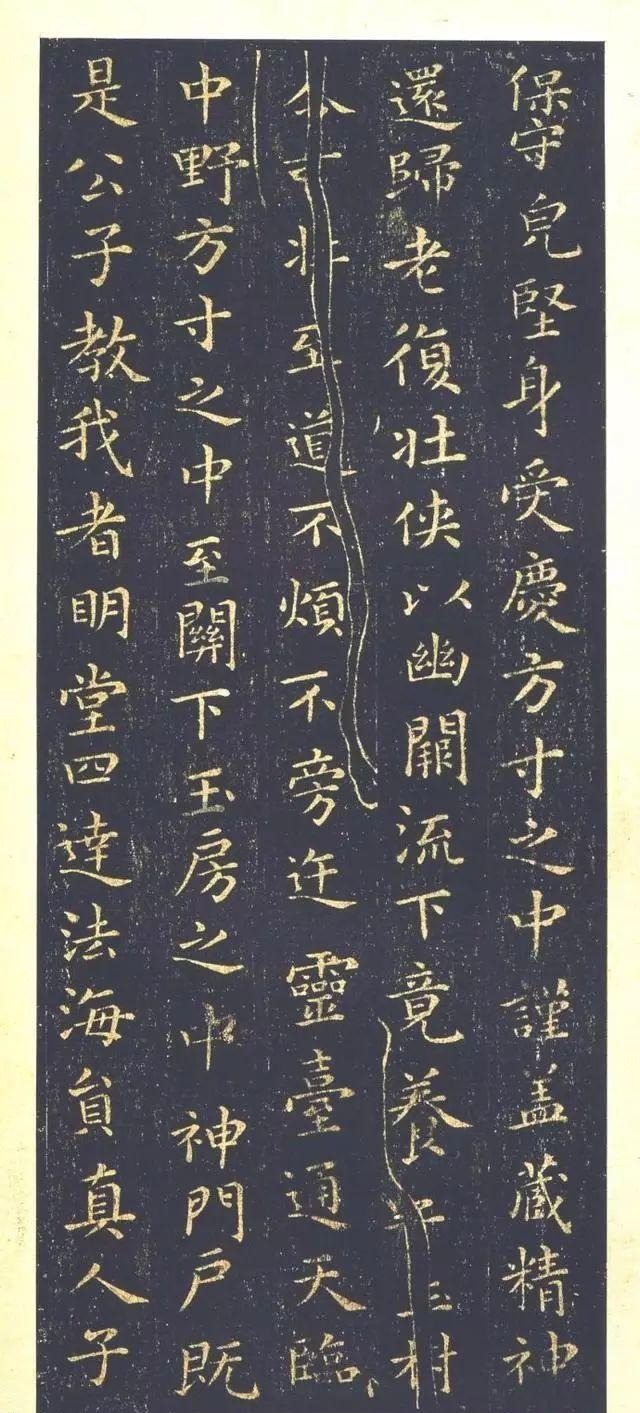 保守皃堅身受慶方寸之中謹盖藏精神
還歸老復壯俠以幽闕流下竟養子玉
令可壯至道不煩不旁迕靈臺通天臨
中野方寸之中至關下玉房之中神門戶既
是公子教我者眀堂四達法海員真人子